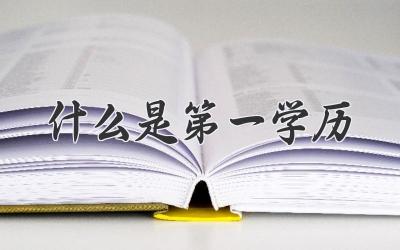 什么是第一学历